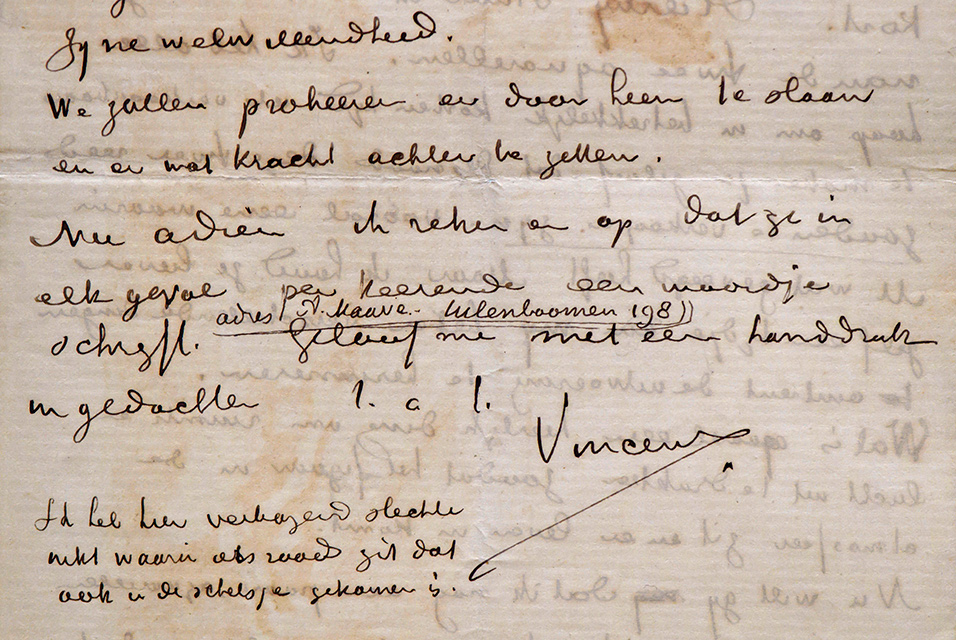 zyne welwillendheid.
We zullen probeeren er door heen te slaan
en er wat kracht achter te zetten.
Nu adieu ik reken er op dat ge in
elk geval per keerende een woordje
adres (A. Mauve. Uilenboomen 198))
schrijft. Geloof me met een handdruk
in gedachten t. à t.
Vincent
Ik heb hier verbazend slechte
inkt waarin iets zit dat
ook in de schetsje gekomen is.